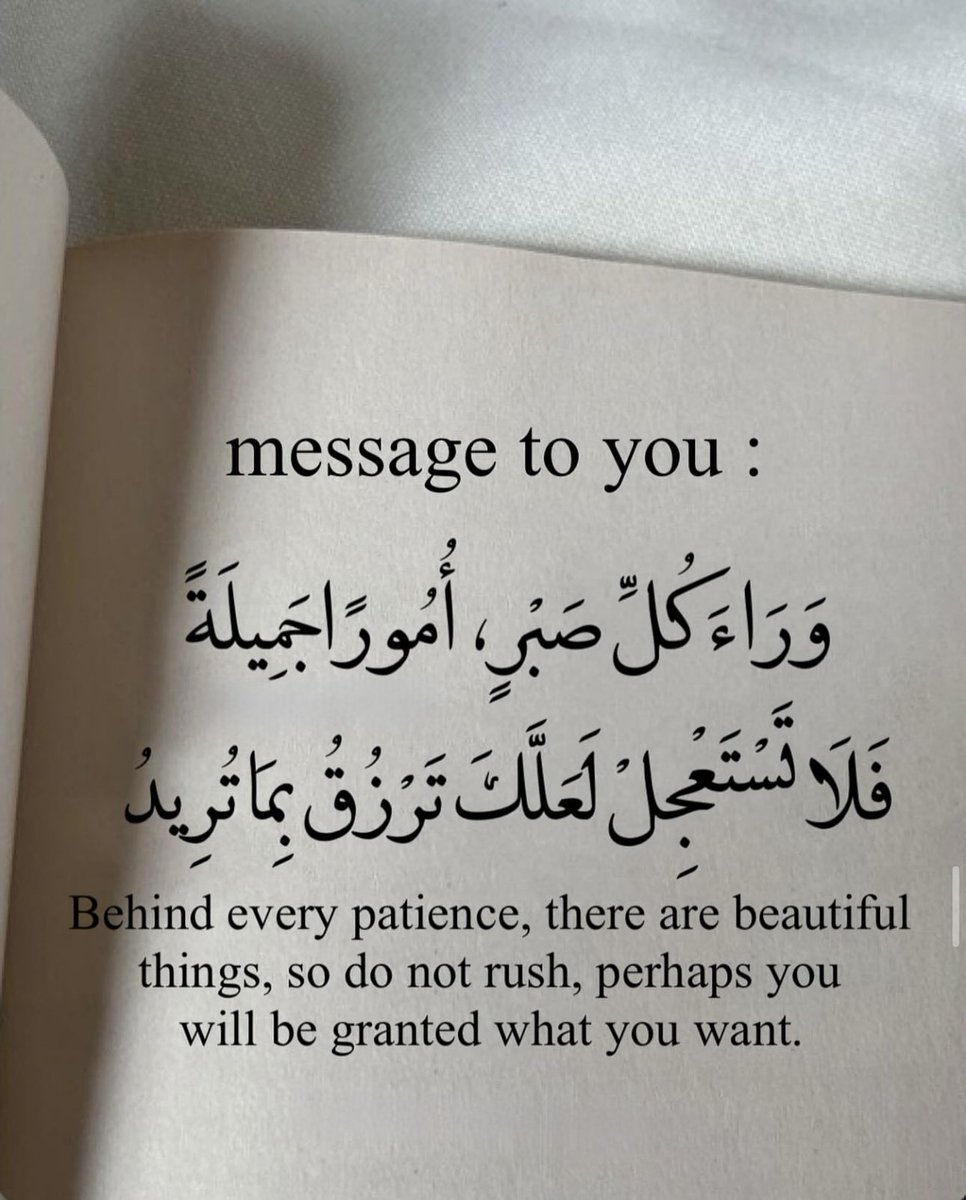 message to you :
وَرَاءَ كُلِّ صَبْرٍ، أُمُورًا جَمِيلَةً
فَلَا تَسْتَعْجِلْ لَعَلَّكَ تَرْزُقُ بِمَا تُرِيدُ
Behind every patience, there are beautiful
things, so do not rush, perhaps you
will be granted what you want.